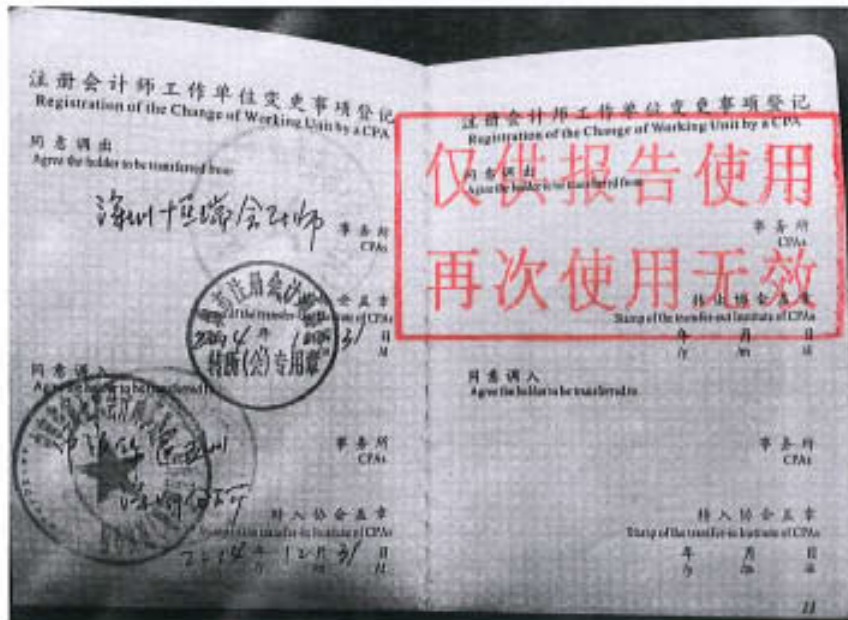 注册会计师工作单位变更事项登记
Registration of the Change of Working Unit by a CPA
同意调出
Agree the holder to be transferred from
事务所
CPAs
Stamp of the transfer-out Institute of CPAs
2014年12月31日
转所(会)专用章
同意调入
Agree the holder to be transferred to
事务所
CPAs
转入协会盖章
Stamp of the transfer-in Institute of CPAs
2014年12月31日
/y /m /d
注册会计师工作单位变更事项登记
Registration of the Change of Working Unit by a CPA
同意调出
Agree the holder to be transferred from
仅供报告使用
再次使用无效
事务所
CPAs
转出协会盖章
Stamp of the transfer-out Institute of CPAs
年 月 日
/y /m /d
同意调入
Agree the holder to be transferred to
事务所
CPAs
转入协会盖章
Stamp of the transfer-in Institute of CPAs
年 月 日
/y /m /d
11